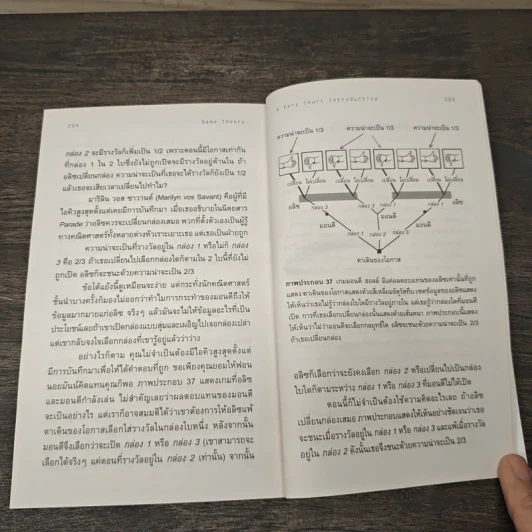 204
Game Theory
กล่อง 2 จะมีรางวัลก็เพิ่มเป็น 1/2 เพราะตอนนี้มีโอกาสเท่ากัน
ที่กล่อง 1 ใน 2 ใบซึ่งยังไม่ถูกเปิดจะมีรางวัลอยู่ด้านใน ถ้า
อลิซเปลี่ยนกล่อง ความน่าจะเป็นที่เธอจะได้รางวัลก็ยังเป็น 1/2
แล้วเธอจะเสียเวลาเปลี่ยนไปทำไม?
มาริลิน วอส ซาวานต์ (Marilyn vos Savant) คือผู้ที่มี
ไอคิวสูงสุดตั้งแต่เคยมีการบันทึกมา เมื่อเธออธิบายในนิตยสาร
Parade ว่าอลิซควรจะเปลี่ยนกล่องเสมอ พวกที่ตั้งตัวเองเป็นผู้รู้
ทางคณิตศาสตร์ทั้งหลายต่างหัวเราะเยาะเธอ แต่เธอเป็นฝ่ายถูก
ความน่าจะเป็นที่รางวัลอยู่ใน กล่อง 1 หรือไม่ก็ กล่อง
3 คือ 2/3 ถ้าเธอเปลี่ยนไปเลือกกล่องใดก็ตามใน 2 ใบนี้ที่ยังไม่
ถูกเปิด อลิซก็จะชนะด้วยความน่าจะเป็น 2/3
ข้อโต้แย้งนี้ดูเหมือนจะง่าย แต่กระทั่งนักคณิตศาสตร์
ชั้นนำบางครั้งก็มองไม่ออกว่าทำไมการกระทำของมอนตีถึงให้
ข้อมูลมากมายแก่อลิซ จริงๆ แล้วมันจะไม่ให้ข้อมูลอะไรที่เป็น
ประโยชน์เลยถ้าเขาเปิดกล่องแบบสุ่มและเผอิญไปเจอกล่องเปล่า
แต่เขากลับจงใจเลือกกล่องที่เขารู้อยู่แล้วว่าว่าง
อย่างไรก็ตาม คุณไม่จำเป็นต้องมีไอคิวสูงสุดตั้งแต่
มีการบันทึกมาเพื่อให้ได้คำตอบที่ถูก ขอเพียงคุณยอมให้ฟอน
นอยมันน์คิดแทนคุณก็พอ ภาพประกอบ 37 แสดงเกมที่อลิซ
และมอนตีกำลังเล่น ไม่สำคัญเลยว่าผลตอบแทนของมอนตี
จะเป็นอย่างไร แต่เราก็อาจสมมติได้ว่าเขาต้องการให้อลิซแพ้
ตาเดินของโอกาสเลือกใส่รางวัลในกล่องใบหนึ่ง หลังจากนั้น
มอนตีจึงเลือกว่าจะเปิด กล่อง 1 หรือ กล่อง 3 (เขาสามารถจะ
เลือกได้จริงๆ แต่ตอนที่รางวัลอยู่ใน กล่อง 2 เท่านั้น) จากนั้น
A Very Short Introduction
205
ความน่าจะเป็น 1/3 ความน่าจะเป็น 1/3 ความน่าจะเป็น 1/3
เปลี่ยน ไม่เปลี่ยน เปลี่ยน ไม่เปลี่ยน เปลี่ยน ไม่เปลี่ยน เปลี่ยน ไม่เปลี่ยน
อลิซ กล่อง 3 กล่อง 3 กล่อง 1 กล่อง 1 อลิซ
มอนตี มอนตี มอนตี
กล่อง 1 กล่อง 2 กล่อง 3
ตาเดินของโอกาส
ภาพประกอบ 37 เกมมอนตี ฮอลล์ มีแค่ผลตอบแทนของอลิซเท่านั้นที่ถูก
แสดง ตาเดินของโอกาสแสดงด้วยสี่เหลี่ยมจัตุรัสทึบ เซตข้อมูลของอลิซแสดง
ให้เห็นว่าเธอไม่รู้ว่ากล่องใบใดมีรางวัลอยู่ภายใน แต่เธอรู้ว่ากล่องใดที่มอนตี
เปิด การที่เธอเลือกเปลี่ยนกล่องนั้นแสดงด้วยเส้นหนา ภาพประกอบนี้แสดง
ให้เห็นว่าไม่ว่ามอนตีจะเลือกกลยุทธ์ใด อลิซจะชนะด้วยความน่าจะเป็น 2/3
ถ้าเธอเปลี่ยนกล่อง
อลิซก็เลือกว่าจะยังคงเลือก กล่อง 2 หรือเปลี่ยนไปเป็นกล่อง
ใบใดก็ตามระหว่าง กล่อง 1 หรือ กล่อง 3 ที่มอนตีไม่ได้เปิด
ตอนนี้ก็ไม่จำเป็นต้องใช้ความคิดอะไรเลย ถ้าอลิซ
เปลี่ยนกล่องเสมอ ภาพประกอบแสดงให้เห็นอย่างชัดเจนว่าเธอ
จะชนะเมื่อรางวัลอยู่ใน กล่อง 1 หรือ กล่อง 3 และแพ้เมื่อรางวัล
อยู่ใน กล่อง 2 ดังนั้นเธอจึงชนะด้วยความน่าจะเป็น 2/3